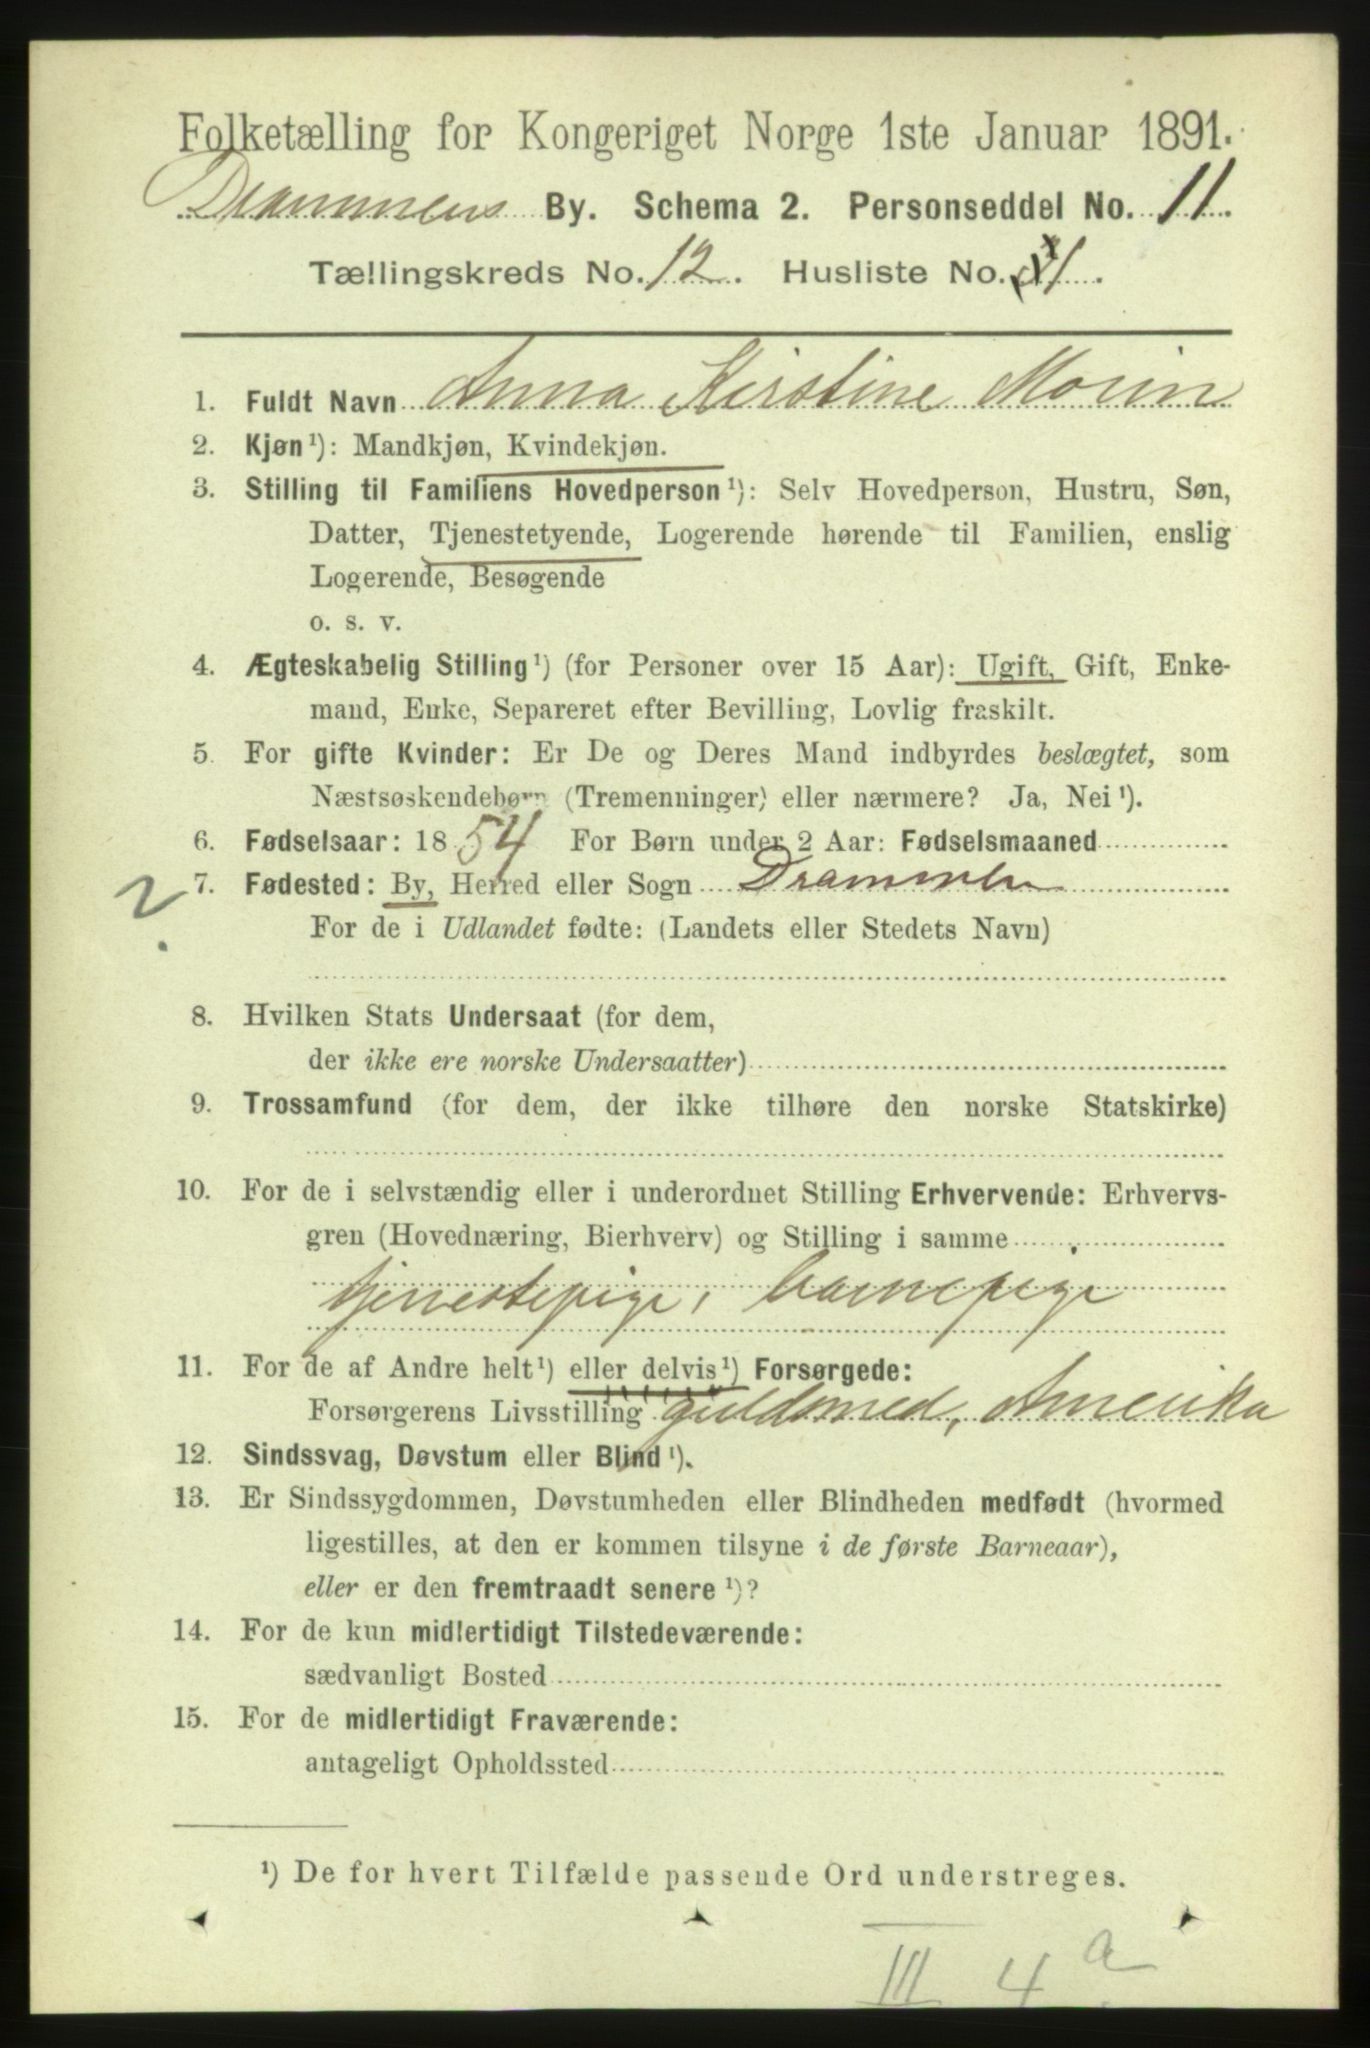 Folketælling for Kongeriget Norge 1ste Januar 1891.
Drammens By. Schema 2. Personseddel No. 11.
Tællingskreds No. 12. Husliste No. 31.
1. Fuldt Navn Anna Kirstine Morin
2. Kjøn¹): Mandkjøn, Kvindekjøn.
3. Stilling til Familiens Hovedperson¹): Selv Hovedperson, Hustru, Søn,
Datter, Tjenestetyende, Logerende hørende til Familien, enslig
Logerende, Besøgende
o. s. v.
4. Ægteskabelig Stilling¹) (for Personer over 15 Aar): Ugift, Gift, Enke-
mand, Enke, Separeret efter Bevilling, Lovlig fraskilt.
5. For gifte Kvinder: Er De og Deres Mand indbyrdes beslægtet, som
Næstsøskendebørn (Tremenninger) eller nærmere? Ja, Nei¹).
6. Fødselsaar: 1854 For Børn under 2 Aar: Fødselsmaaned
2. 7. Fødested: By, Herred eller Sogn Drammen
For de i Udlandet fødte: (Landets eller Stedets Navn)
8. Hvilken Stats Undersaat (for dem,
der ikke ere norske Undersaatter)
9. Trossamfund (for dem, der ikke tilhøre den norske Statskirke)
10. For de i selvstændig eller i underordnet Stilling Erhvervende: Erhvervs-
gren (Hovednæring, Bierhverv) og Stilling i samme
tjenestepige, barnepige
11. For de af Andre helt¹) eller delvis¹) Forsørgede:
Forsørgerens Livsstilling guldsmed, Amerika
12. Sindssvag, Døvstum eller Blind¹).
13. Er Sindssygdommen, Døvstumheden eller Blindheden medfødt (hvormed
ligestilles, at den er kommen tilsyne i de første Barneaar),
eller er den fremtraadt senere¹)?
14. For de kun midlertidigt Tilstedeværende:
sædvanligt Bosted
15. For de midlertidigt Fraværende:
antageligt Opholdssted
¹) De for hvert Tilfælde passende Ord understreges.
III 4 a